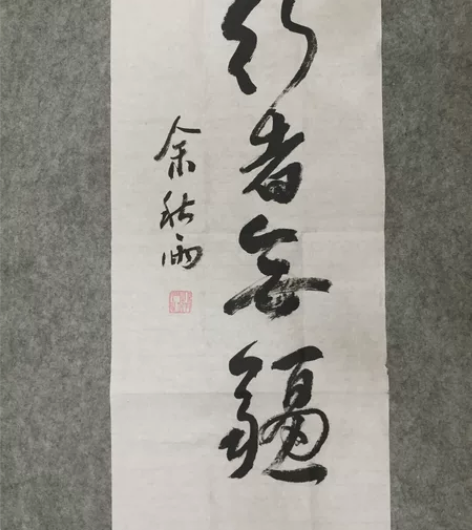 行者无疆
余秋雨